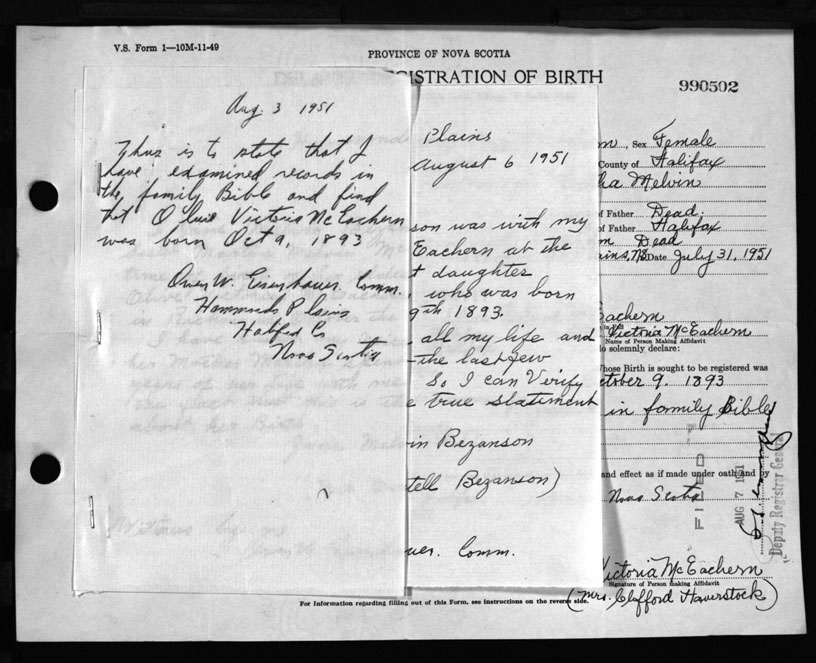 V.S. Form 1—10M-11-49
PROVINCE OF NOVA SCOTIA
GISTRATION OF BIRTH
990502
Aug. 3 1951
This is to state that I
have examined records in
the family Bible and find
that Olive Victoria McEachern
was born Oct 9, 1893
Owen W. Eisenhauer. Comm.
Hammonds Plains
Halifax Co
Nova Scotia
Plains
August 6 1951
son was with my
Eachern at the
t daughter
, who was born
9th 1893.
, all my life and
the last few
So I can Verify
e true statement
in Bezanson
tell Bezanson)
uer. Comm.
n, Sex Female
County of Halifax
ha Melvin
of Father Dead.
of Father Halifax
m Dead
ains, NS Date July 31, 1951
Eachern
Victoria McEachern
Name of Person Making Affidavit
do solemnly declare:
whose Birth is sought to be registered was
ctober 9. 1893
in family Bible
and effect as if made under oath and by
Nova Scotia
FILED
AUG 7 1951
Deputy Registrar General
Victoria McEachern
Signature of Person making Affidavit
(Mrs. Clifford Haverstock)
For Information regarding filling out of this Form, see instructions on the reverse side.